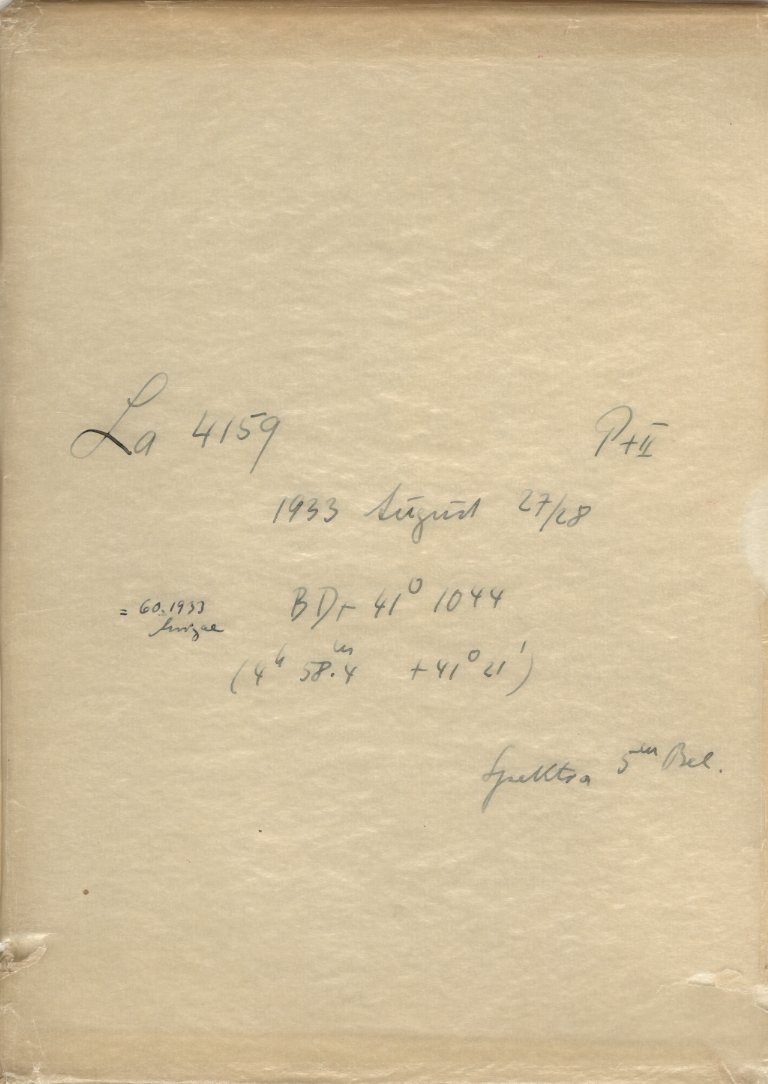 La 4159 P+II
1933 August 27/28
= 60.1933 BD+ 41° 1044
Aurigae
(4ʰ 58.ᵐ4 +41° 21')
Spektra 5ᵐ Bel.